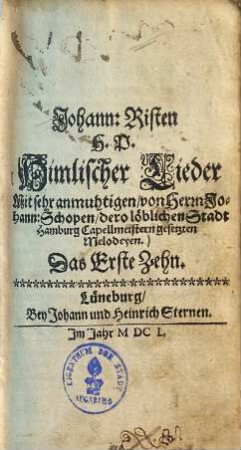 Johann: Risten
H. P.
Himlischer Lieder
Mit sehr anmuhtigen / von Herrn Jo-
hann: Schopen / dero löblichen Stadt
Hamburg Capellmeistern gesetzten
Melodeyen.
Das Erste Zehn.
Lüneburg /
Bey Johann und Heinrich Sternen.
Im Jahr M DC L.
EIGENTHUM DER STADT
AUGSBURG